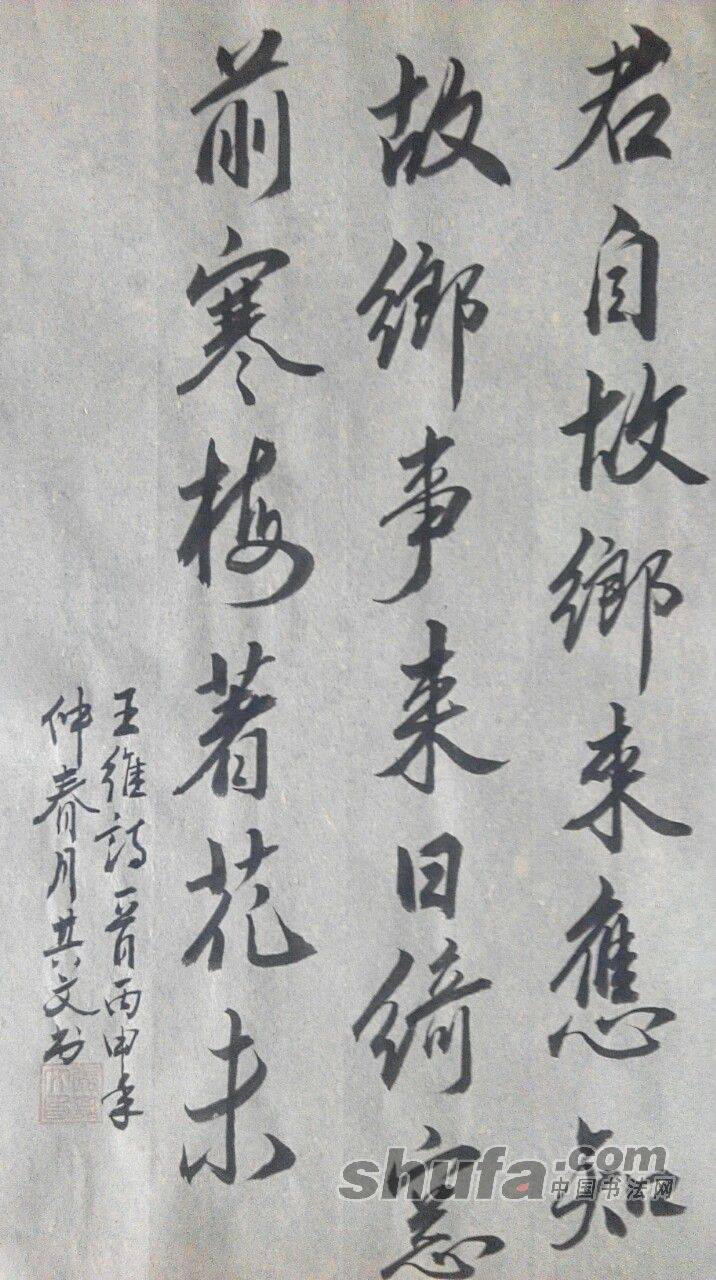 君自故鄉來應知
故鄉事来日綺窓
前寒梅著花未
王維詩一首丙申年
仲春月其文书
shufa.com
中国书法网